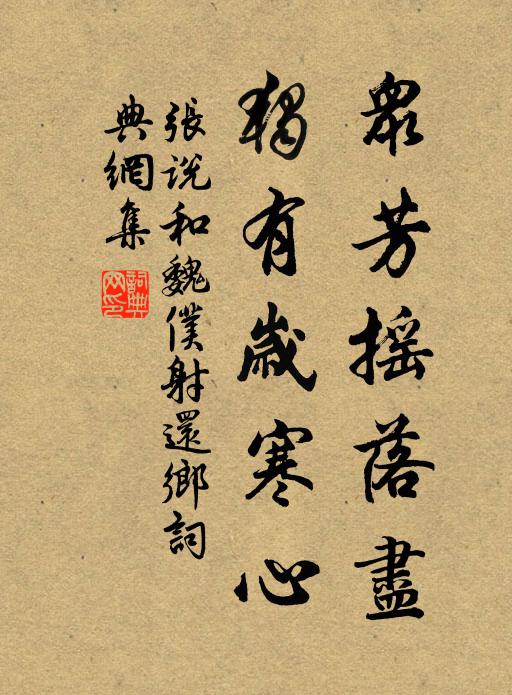 眾芳摇落盡
獨有歲寒心
張說和魏僕射還鄉詞
典網集
詞典网印